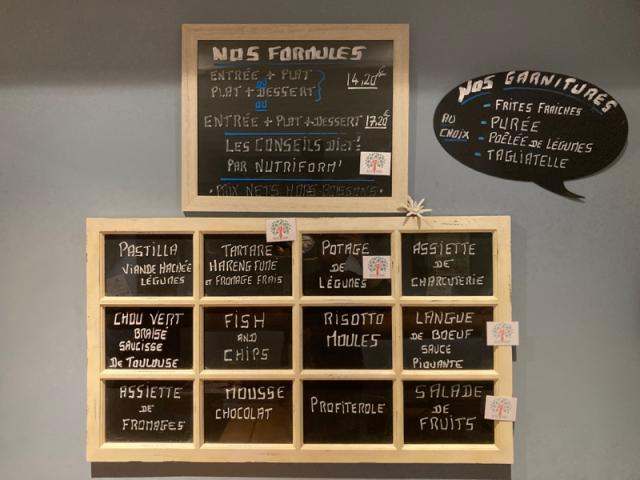 NOS FORMULES
ENTRÉE + PLAT
OU
PLAT + DESSERT
14,20€
OU
ENTRÉE + PLAT + DESSERT 17,20€
LES CONSEILS DIET!
PAR NUTRIFORM'
• PRIX NETS HORS-BOISSONS •
NOS GARNITURES
AU CHOIX
- FRITES FRAÎCHES
- PURÉE
- POÊLÉE DE LÉGUMES
- TAGLIATELLE
PASTILLA
VIANDE HACHÉE
LÉGUMES
TARTARE
HARENG FUMÉ
ET FROMAGE FRAIS
POTAGE
DE
LÉGUMES
ASSIETTE
DE
CHARCUTERIE
CHOU VERT
BRAISÉ
SAUCISSE
DE TOULOUSE
FISH
AND
CHIPS
RISOTTO
MOULES
LANGUE
DE BOEUF
SAUCE
PIQUANTE
ASSIETTE
DE
FROMAGES
MOUSSE
CHOCOLAT
PROFITEROLE
SALADE
DE
FRUITS